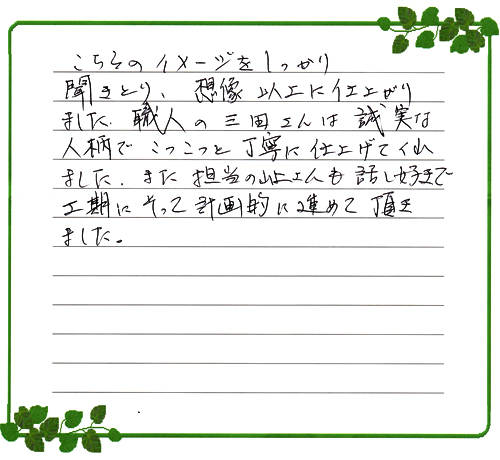 こちらのイメージをしっかり
聞きとり、想像以上に仕上がり
ました。職人の三田さんは誠実な
人柄でこつこつと丁寧に仕上げてくれ
ました。また担当の山上さんも話し好きで
工期にそって計画的に進めて頂き
ました。